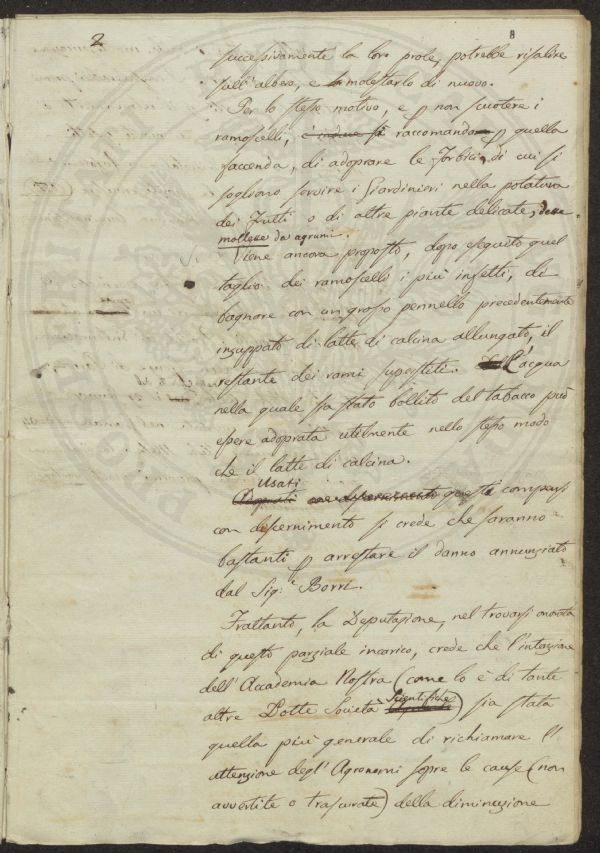 2
8
successivamente la loro prole, potrebbe risalire
sull'albero, e molestarlo di nuovo.
Per lo stesso motivo, e p non scuotere i
ramoscelli, raccomanda p quella
faccenda, di adoprare le Forbici, di cui si
sogliono servire i Giardinieri nella potatura
dei Frutti o di altre piante delicate,
mollesse da agrumi.
Viene ancora proposto, dopo eseguito quel
taglio dei ramoscelli i più infetti, di
bagnare con un grosso pennello precedentemente
inzuppato di latte di calcina allungato, il
restante dei rami superstiti. L'acqua
nella quale sia stato bollito del tabacco può
essere adoprata utilmente nello stesso modo
che il latte di calcina.
Usati
questi compensi
con discernimento si crede che saranno
bastanti p arrestare il danno annunziato
dal Sig.e Borri.
Frattanto, la Deputazione, nel trovarsi onorata
di questo parziale incarico, crede che l'intenzione
dell'Accademia Nostra (come lo è di tante
altre Dotte Società Scientifiche) sia stata
quella più generale di richiamare l'
attenzione degl'Agronomi sopre le cause (non
avvertite o trascurate) della diminuzione